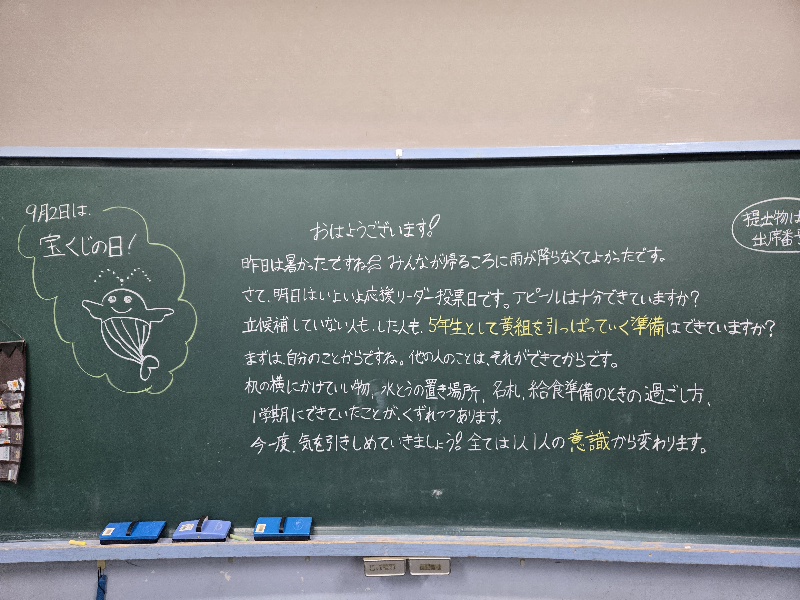 9月2日は、
宝くじの日!
おはようございます!
昨日は暑かったですね。みんなが帰るころに雨が降らなくてよかったです。
さて、明日はいよいよ応援リーダー投票日です。アピールは十分できていますか?
立候補していない人も、した人も、5年生として黄組を引っぱっていく準備はできていますか?
まずは、自分のことからですね。他の人のことは、それができてからです。
机の横にかけていい物、水とうの置き場所、名札、給食準備のときの過ごし方、
1学期にできていたことが、くずれつつあります。
今一度、気を引きしめていきましょう!全ては1人1人の意識から変わります。
提出物は
出席番号